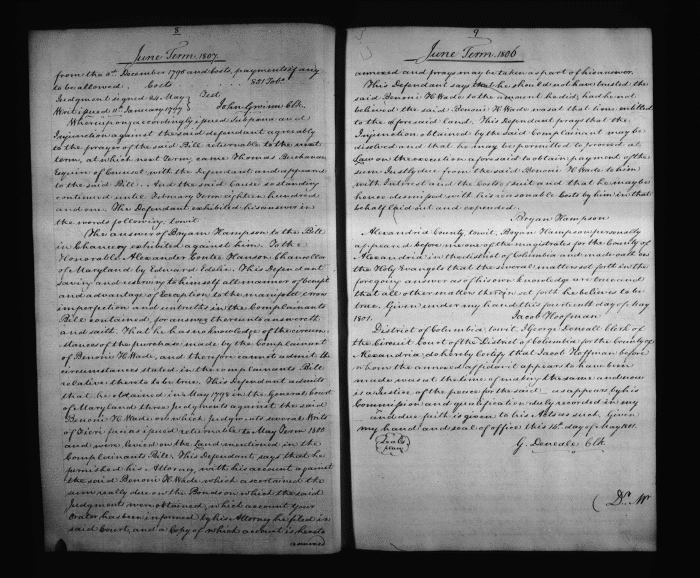 8
June Term 1807.
from the 5th December 1798 and Costs, payments if any
to be allowed. Costs . . . . 851 Tobo
Judgment signed 24 May } Test
Writ issued 11th January 1799 } John Gwinn Clk.
Whereupon accordingly issued Subpoena and
Injunction against the said defendant agreeably
to the prayer of the said Bill returnable to the next
term, at which next Term, came Thomas Buchanan
Esquire of Counsel with the Defendant and appeared
to the said Bill. And the said Cause so standing
continued until February Term eighteen hundred
and one. The Defendant exhibited his answer in
the words following towit
The answer of Bryan Hampson to the Bill
in Chancery exhibited against him. To the
Honorable Alexander Contee Hanson Chancellor
of Maryland by Edward Edelin. This Defendant
saving and reserving to himself all manner of benefit
and advantage of Exception to the manifest errors
imperfection and untruths in the Complainants
Bill contained, for answer thereunto answereth
and saith. That he has no knowledge of the circum-
stances of the purchase made by the Complainant
of Benoni H. Wade, and therefore cannot admit the
circumstances stated in the complainants Bill
relative thereto to be true. This Defendant admits
that he obtained in May 1798 in the General Court
of Maryland three Judgments against the said
Benoni H. Wade on which Judgments several Writs
of Fieri facias issued returnable to May Term 1800
and were levied on the Land mentioned in the
Complainants Bill. This Defendant says that he
furnished his Attorney, with his account against
the said Benoni H. Wade which ascertained the
sum really due on the Bonds on which the said
Judgments were obtained, which account your
Orator has been informed by his Attorney he filed in
said Court, and a Copy of which account is hereto
annexed
9
June Term 1806
annexed and prays may be taken as part of his answer.
This Defendant says that he should not have trusted the
said Benoni H Wade to the amount he did, had he not
believed the said Benoni H. Wade was at that time entitled
to the aforesaid land. This Defendant prays that the
Injunction obtained by the said Complainant may be
disolved and that he may be permitted to proceed at
Law on the execution aforesaid to obtain payment of the
sum Justly due from the said Benoni H. Wade to him
with Interest and the Costs of suit and that he may be
hence desmised with his resonable Costs by him in that
behalf laid out and expended.
Bryan Hampson
Alexandria County towit, Bryan Hampson personally
appeared before me one of the magistrates for the County of
Alexandria in the district of Columbia and made oath on
the Holy Evangels that the several matters set forth in the
foregoing answer as of his own knowledge are true and
that all other matter therein set forth he believes to be
true. Given under my hand this fourteenth day of May
1801. Jacob Hoffman
District of Columbia towit I George Deneale Clerk of
the Circuit Court of the District of Columbia for the County of
Alexandria, do hereby certify that Jacob Hoffman before
whom the annexed affidavit appears to have been
made was at the time of making the same and now
is a Justice of the peace for the said as appears by his
Commission and qualification duly recorded in my
and due faith is given to his Acts as such, Given
my hand and seal of office this 16th day of May 1801.
G. Deneale Clk
Seal
Dr. W